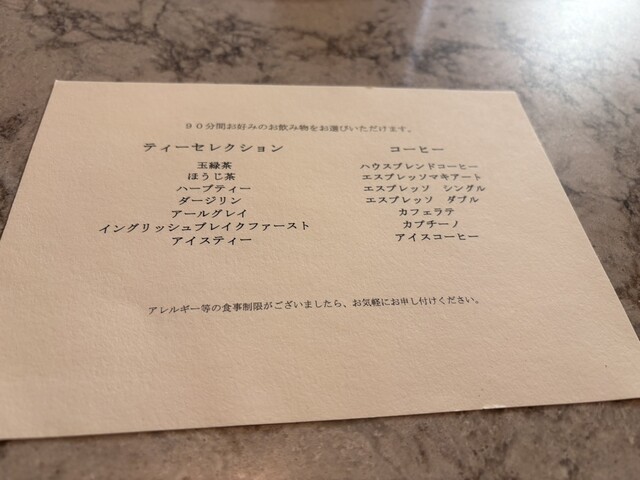 ９０分間お好みのお飲み物をお選びいただけます。
ティーセレクション
玉緑茶
ほうじ茶
ハーブティー
ダージリン
アールグレイ
イングリッシュブレイクファースト
アイスティー
コーヒー
ハウスブレンドコーヒー
エスプレッソマキアート
エスプレッソ　シングル
エスプレッソ　ダブル
カフェラテ
カプチーノ
アイスコーヒー
アレルギー等の食事制限がございましたら、お気軽にお申し付けください。